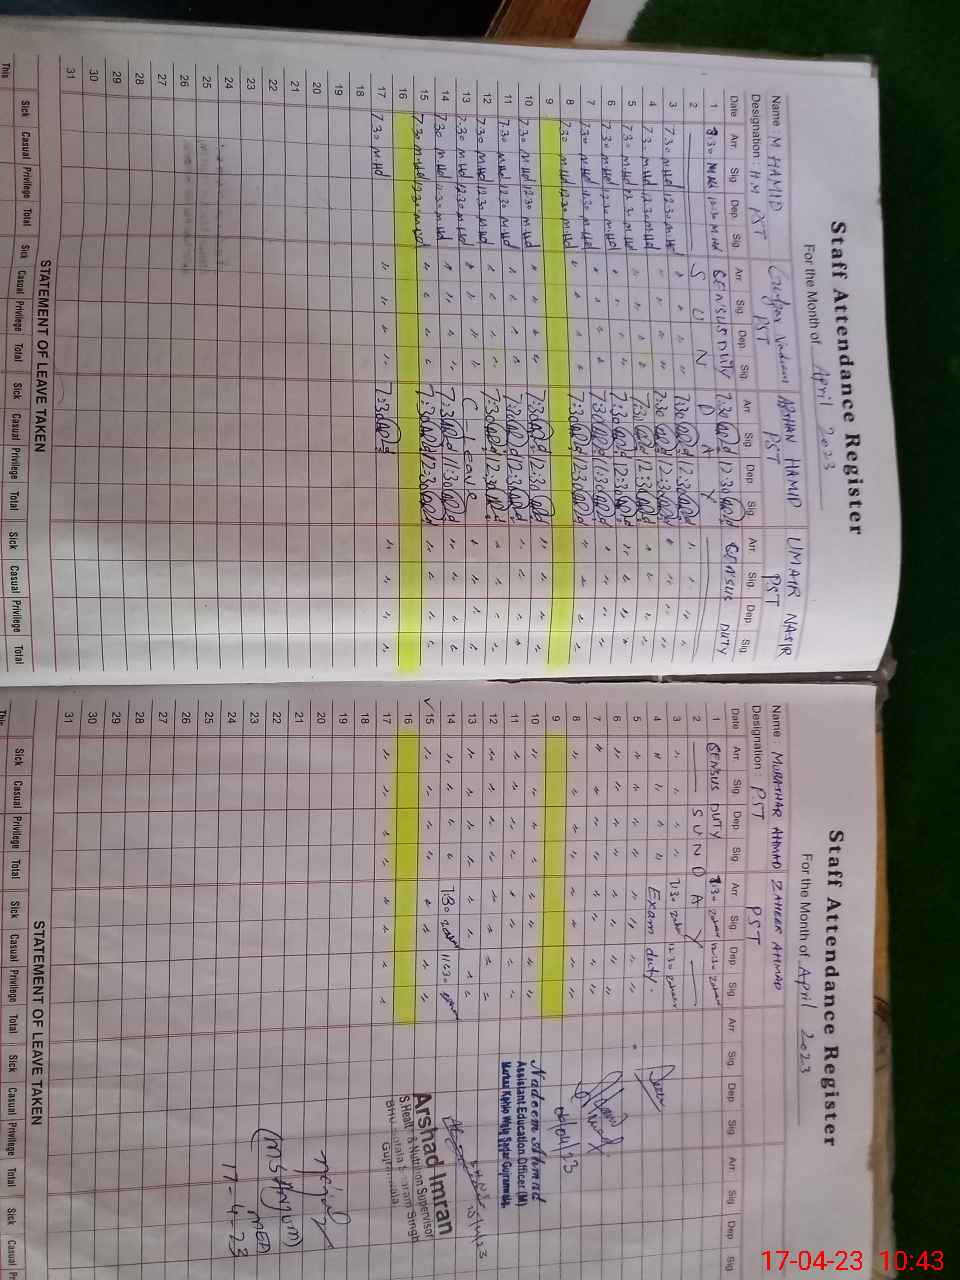 Staff Attendance Register
For the Month of April 2023
Name: M HAMID ARSHAN HAMID UMAIR NASIR
Designation: H.M PST PST PST PST
Date Arr. Sig Dep. Sig Arr Sig. Dep Sig. Arr. Sig. Dep. Sig. Arr. Sig Dep Sig
1 8:30 M.Hd 12:30 M.Hd CENSUS DUTY 7:30 12:30 CENSUS DUTY
2 S U N D A Y
3 7:30 M.Hd 12:30 M.Hd " " " " 7:30 12:30 " " " "
4 7:30 M.Hd 12:30 M.Hd " " " " 7:30 12:30 " " " "
5 7:30 M.Hd 12:30 M.Hd " " " " 7:30 12:30 " " " "
6 7:30 M.Hd 12:30 M.Hd " " " " 7:30 12:30 " " " "
7 7:30 M.Hd 11:30 M.Hd " " " " 7:30 11:30 " " " "
8 7:30 M.Hd 12:30 M.Hd " " " " 7:30 12:30 " " " "
9
10 7:30 M.Hd 12:30 M.Hd " " " " 7:30 12:30 " " " "
11 7:30 M.Hd 12:30 M.Hd " " " " 7:30 12:30 " " " "
12 7:30 M.Hd 12:30 M.Hd " " " " 7:30 12:30 " " " "
13 7:30 M.Hd 12:30 M.Hd " " " " C - leave " " " "
14 7:30 M.Hd 11:30 M.Hd " " " " 7:30 11:30 " " " "
15 7:30 M.Hd 12:30 M.Hd " " " " 7:30 12:30 " " " "
16
17 7:30 M.Hd " " " " 7:30 " " " "
18
19
20
21
22
23
24
25
26
27
28
29
30
31
STATEMENT OF LEAVE TAKEN
Sick Casual Privilege Total Sick Casual Privilege Total Sick Casual Privilege Total Sick Casual Privilege Total
This
Staff Attendance Register
For the Month of April 2023
Name: MUBASHAR AHMAD ZAHEER AHMAD
Designation: PST PST
Date Arr. Sig Dep. Sig Arr. Sig. Dep. Sig. Arr. Sig. Dep. Sig. Arr. Sig. Dep Sig.
1 CENSUS DUTY 7:30 12:30
2 S U N D A Y
3 " " " " 7:30 12:30
4 " " " " Exam duty.
5 " " " " " " " "
6 " " " " " " " "
7 " " " " " " " "
8 " " " " " " " "
9
10 " " " " " " " "
11 " " " " " " " "
12 " " " " " " " "
13 " " " " " " " "
14 " " " " 7:30 11:30
15 " " " " " " " "
16
17 " " " " " " " "
18
19
20
21
22
23
24
25
26
27
28
29
30
31
06/04/23
Nadeem Ahmad
Assistant Education Officer (M)
Markaz Kacha Wala Sadar Gujranwala
15/4/23
Arshad Imran
S.Health & Nutrition Supervisor
Gujranwala
(MS ANJUM)
MEA
17-4-23
STATEMENT OF LEAVE TAKEN
Sick Casual Privilege Total Sick Casual Privilege Total Sick Casual Privilege Total Sick Casual
This
17-04-23 10:43